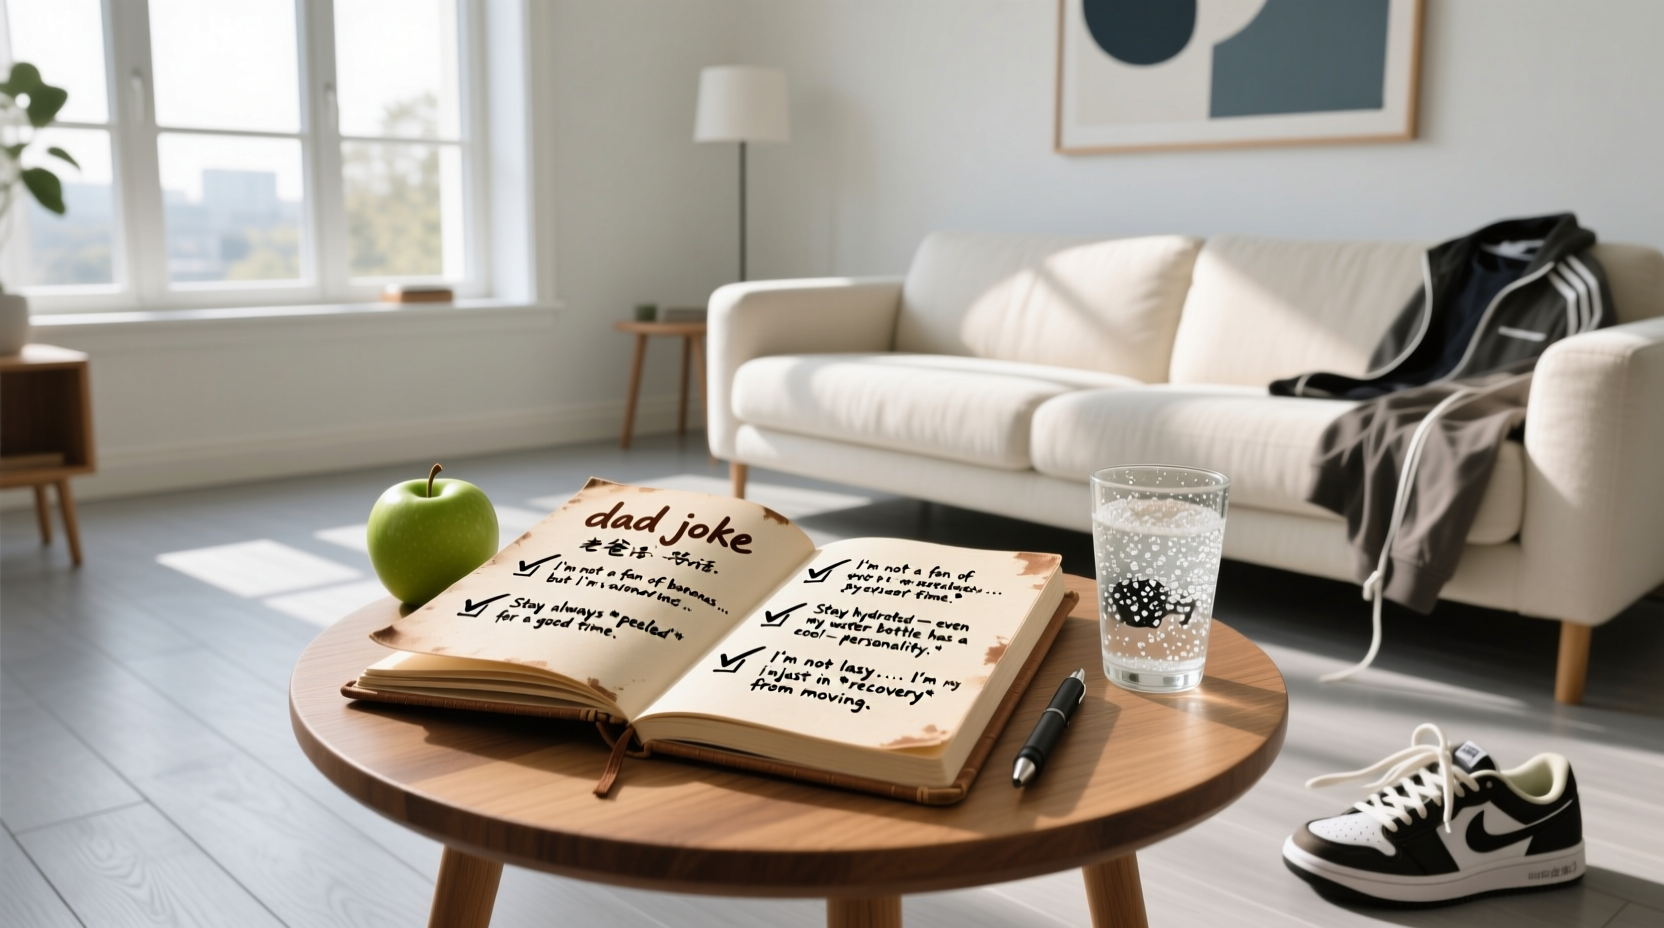 dad joke
老爸
I'm not a fan of bananas...
but I'm
Stay always *peeled*
for a good time.
I'm not a fan of
time.*
Stay hydrated – even
my water bottle has a
cool – personality.*
I'm not lasy.... I'm my
in *recovery*
from moving.